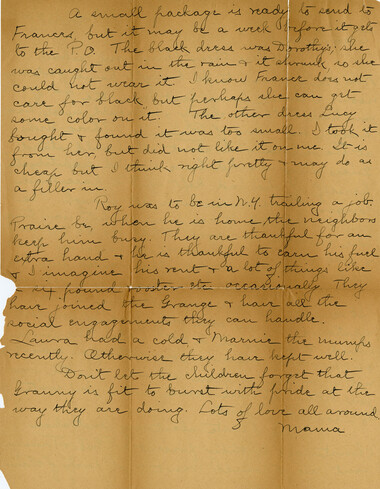 A small package is ready to send to
Frances, but it may be a week before it gets
to the P.O. The black dress was Dorothy's; she
was caught out in the rain & it shrunk so she
could not wear it. I know France does not
care for black but perhaps she can get
some color on it. The other dress Lucy
bought & found it was too small. I took it
from her, but did not like it on me. It is
cheap but I think right pretty & may do as
a filler in.
Roy was to be in N.Y. trailing a job.
Praise be, when he is home, the neighbors
keep him busy. They are thankful for an
extra hand & he is thankful to earn his fuel
& I imagine his rent & a lot of things like
a six pound rooster etc occasionally. They
hair joined the Grange & hair all the
social engagements they can handle.
Laura had a cold & Marnie the mumps
recently. Otherwise they hair kept well.
Don't let the children forget that
Granny is fit to burst with pride at the
way they are doing. Lots of love all around
Mama